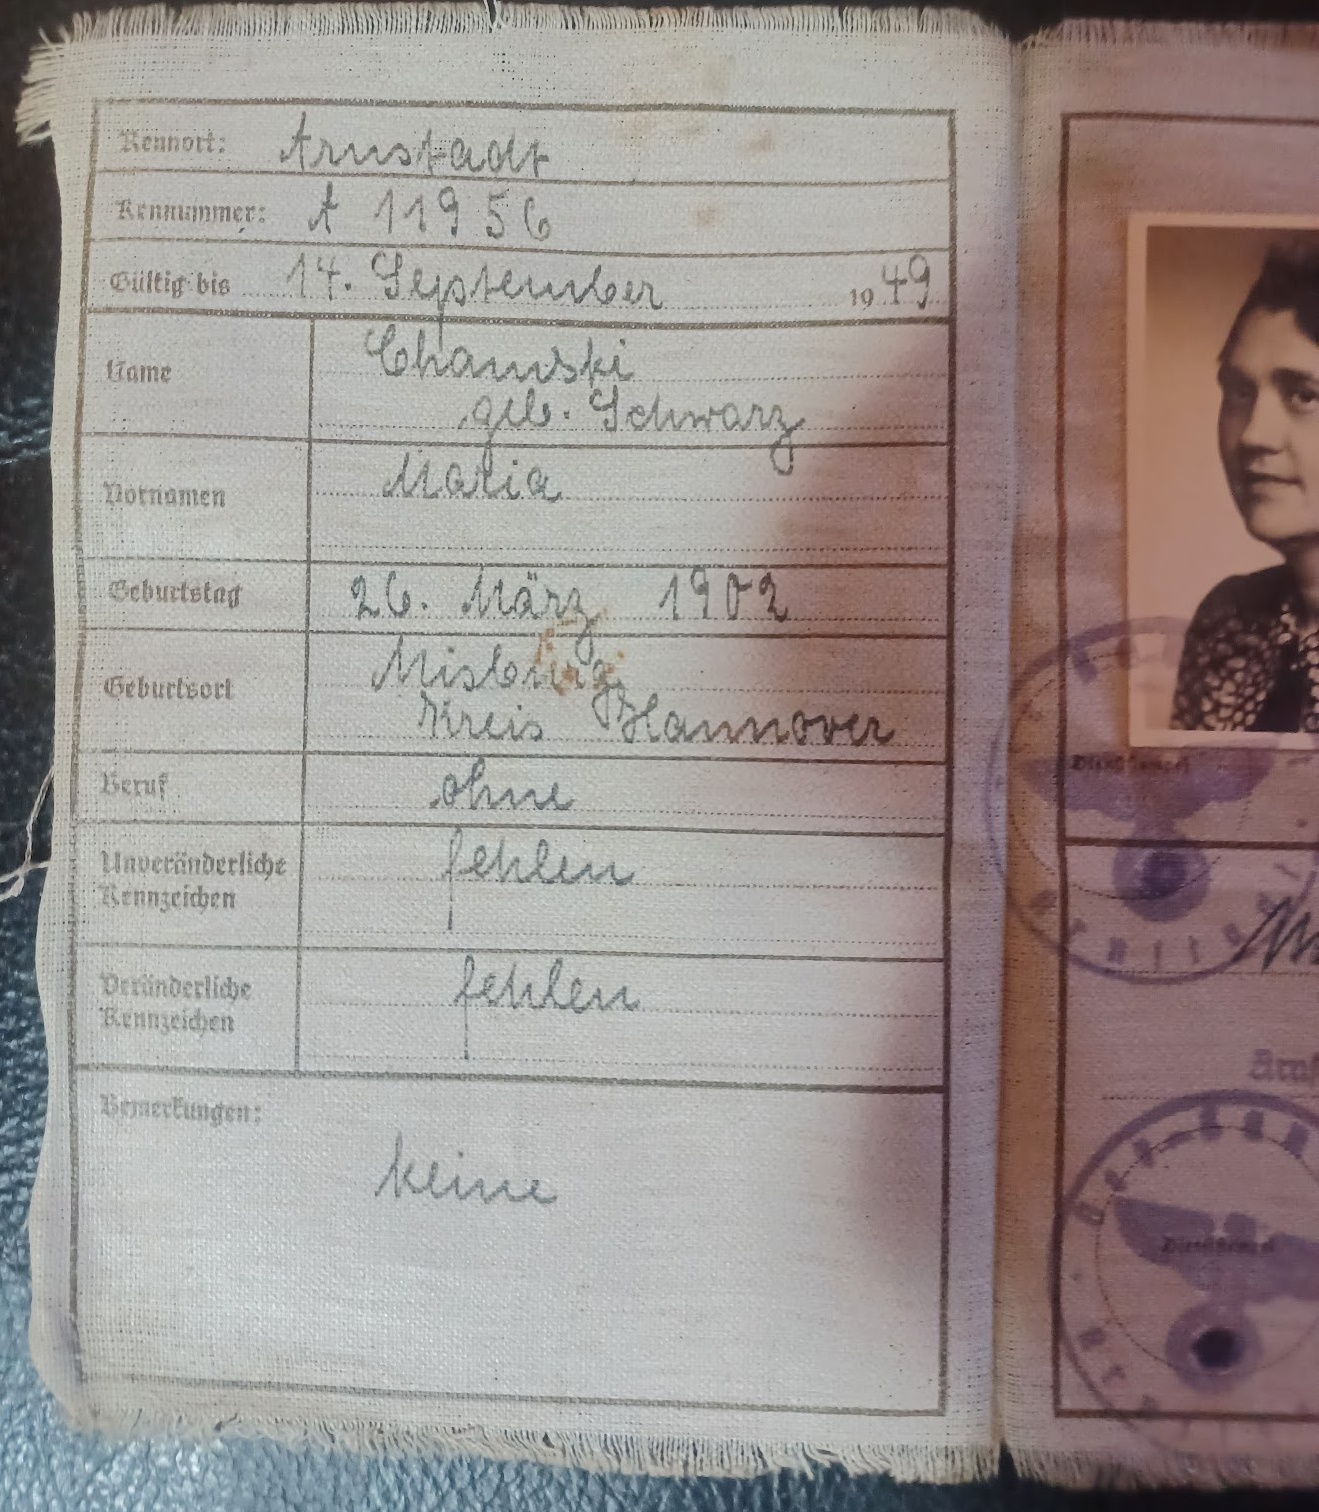 Kennort: Arnstadt
Kennummer: A 11956
Gültig bis 14. September 1949
Name Chamski
geb. Schwarz
Vornamen Maria
Geburtstag 26. März 1902
Geburtsort Misburg
Kreis Hannover
Beruf ohne
Unveränderliche Kennzeichen fehlen
Veränderliche Kennzeichen fehlen
Bemerkungen:
keine
Dienststempel
Dienststempel